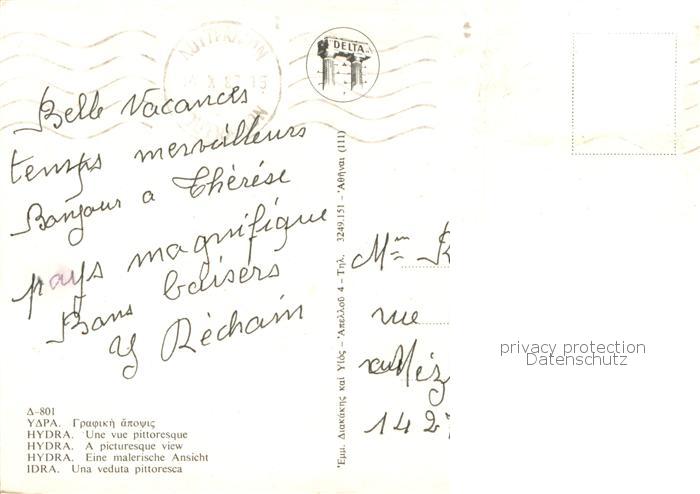 DELTA
Belle Vacances
temps merveilleux
Bonjour a Thérèse
pays magnifique
Bons baisers
Y Réchain
Δ-801
ΥΔΡΑ. Γραφικὴ ἄποψις
HYDRA. Une vue pittoresque
HYDRA. A picturesque view
HYDRA. Eine malerische Ansicht
IDRA. Una veduta pittoresca
Ἐμμ. Διακάκης καὶ Υἱός – Ἀπελλοῦ 4 – Τηλ. 3249.151 – Ἀθῆναι (111)
Mme
rue
142
privacy protection
Datenschutz